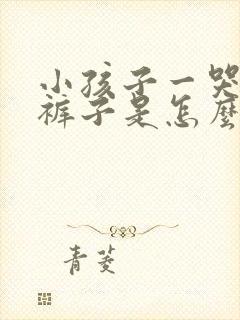 小孩子一哭
裤子是怎麼
青菱